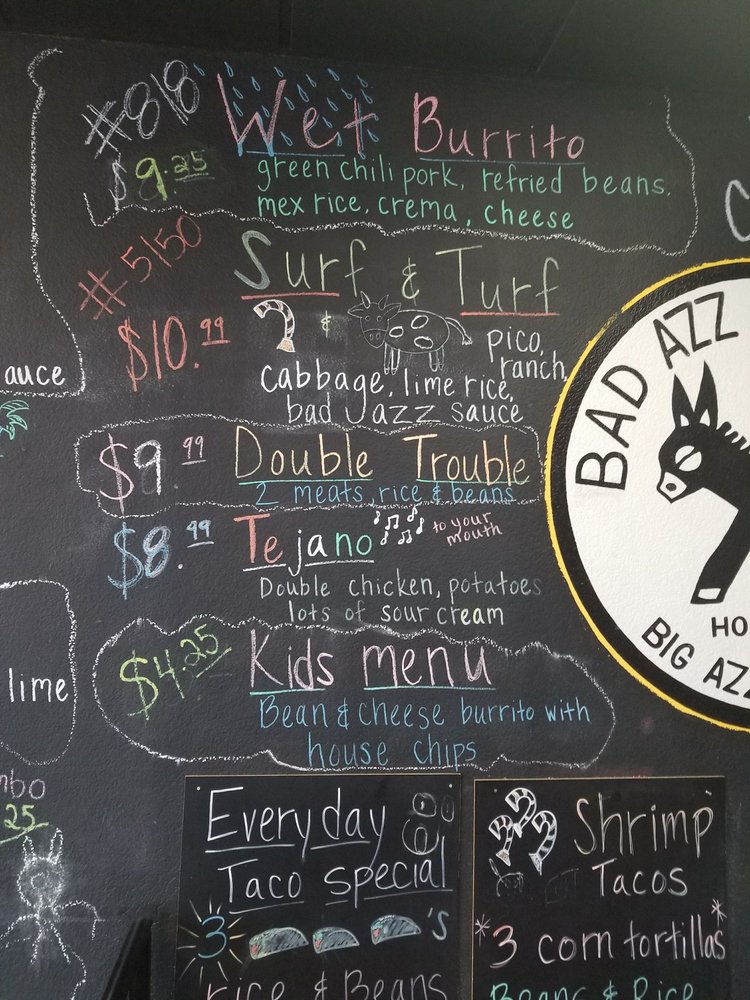 #818
Wet Burrito
$9.25
green chili pork, refried beans.
mex rice, crema, cheese
#5150
Surf & Turf
$10.99
&
pico,
ranch,
cabbage, lime rice,
bad Jazz sauce
auce
$9.99
Double Trouble
2 meats, rice & beans
$8.99
Tejano
to your
mouth
Double chicken, potatoes
lots of sour cream
lime
$4.25
Kids menu
Bean & Cheese burrito with
house chips
BAD AZZ
HO
BIG AZZ
mbo
25
Everyday
Taco special
3 's
rice & Beans
Shrimp
Tacos
*3 corn tortillas*
Beans & Rice